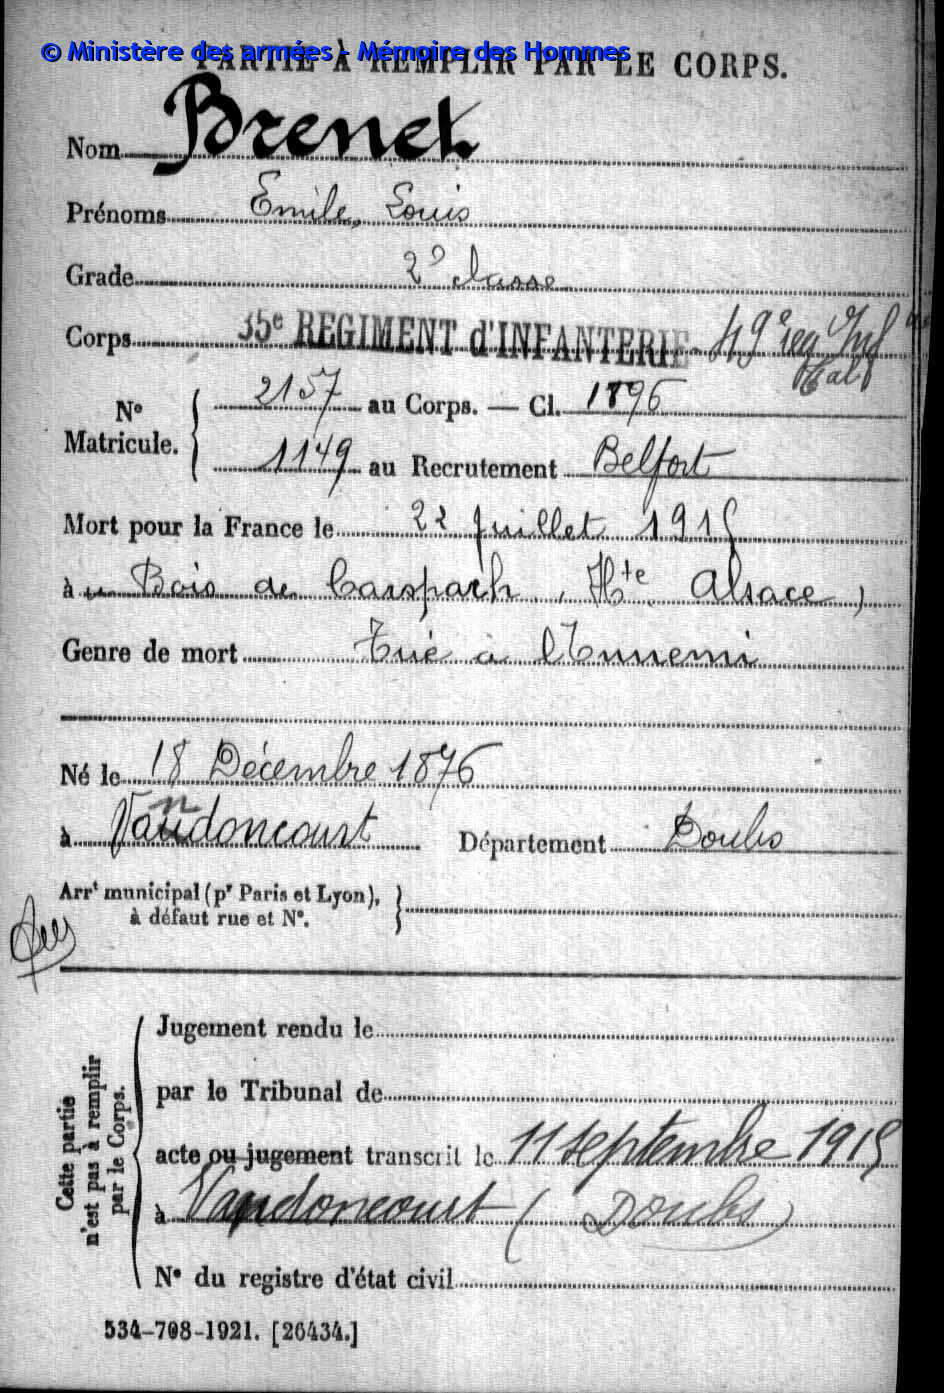 © Ministère des armées - Mémoire des Hommes
PARTIE À REMPLIR PAR LE CORPS.
Nom Brenet
Prénoms Emile, Louis
Grade 2e classe
Corps 35e REGIMENT d'INFANTERIE - 49e reg Inf
N° Matricule. { 2157 au Corps. — Cl. 1896
1149 au Recrutement Belfort
Mort pour la France le 22 Juillet 1915
à Bois de Carspach, (Hte Alsace)
Genre de mort Tué à l'Ennemi
Né le 18 Décembre 1876
à Vandoncourt Département Doubs
Arrt municipal (pr Paris et Lyon), }
à défaut rue et N°.
Cette partie n'est pas à remplir par le Corps.
Jugement rendu le
par le Tribunal de
acte ou jugement transcrit le 11 septembre 1915
à Vandoncourt (Doubs)
N° du registre d'état civil
534-708-1921. [26434.]